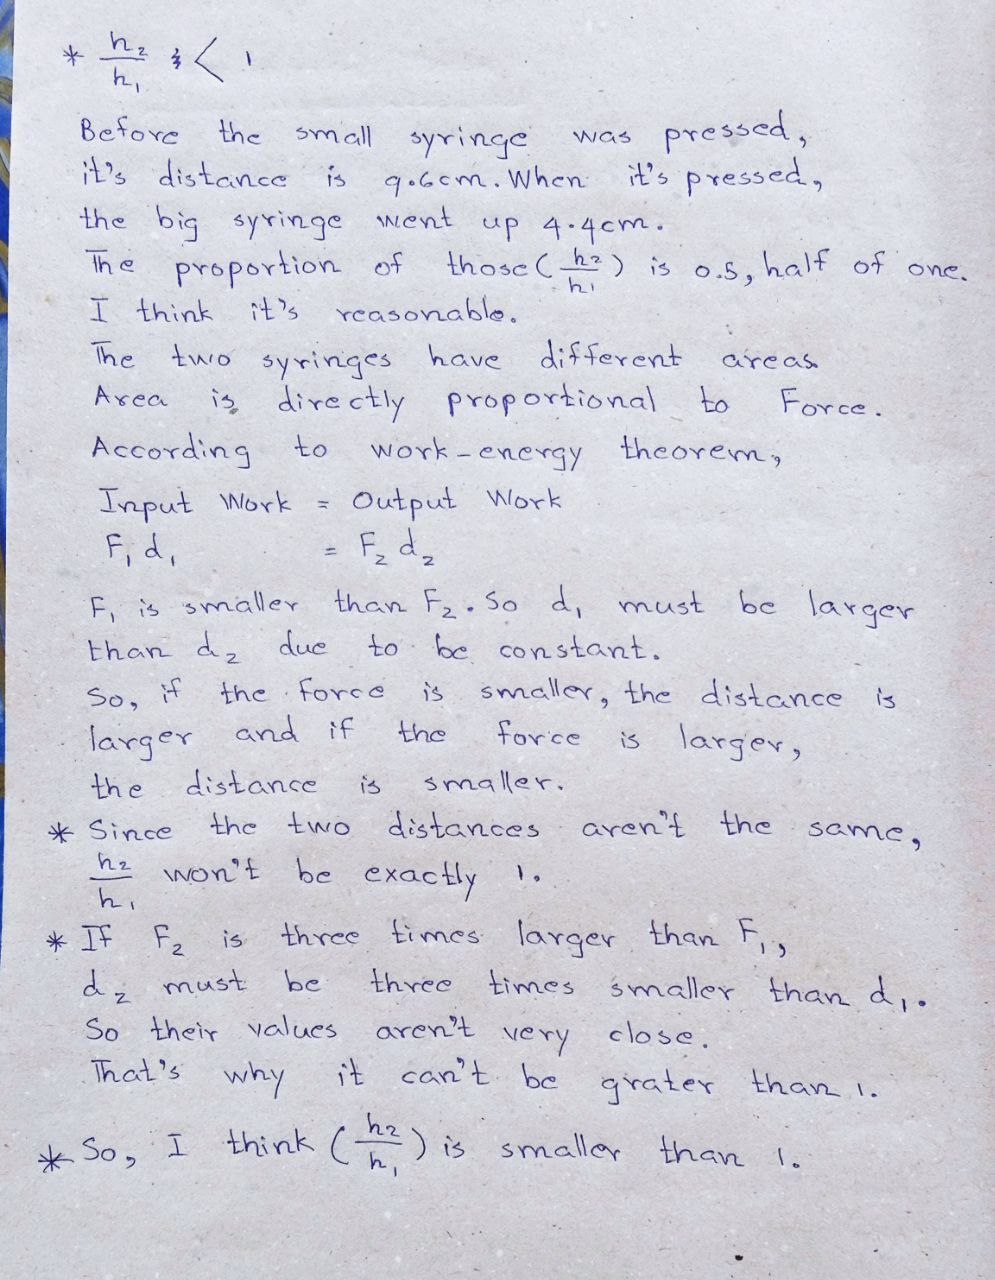 * h₂/h₁ < 1
Before the small syringe was pressed,
it's distance is 9.6cm. When it's pressed,
the big syringe went up 4.4cm.
The proportion of those (h₂/h₁) is 0.5, half of one.
I think it's reasonable.
The two syringes have different areas.
Area is directly proportional to Force.
According to work-energy theorem,
Input Work = Output Work
F₁ d₁ = F₂ d₂
F₁ is smaller than F₂. So d₁ must be larger
than d₂ due to be constant.
So, if the force is smaller, the distance is
larger and if the force is larger,
the distance is smaller.
* Since the two distances aren't the same,
h₂/h₁ won't be exactly 1.
* If F₂ is three times larger than F₁,
d₂ must be three times smaller than d₁.
So their values aren't very close.
That's why it can't be grater than 1.
* So, I think (h₂/h₁) is smaller than 1.